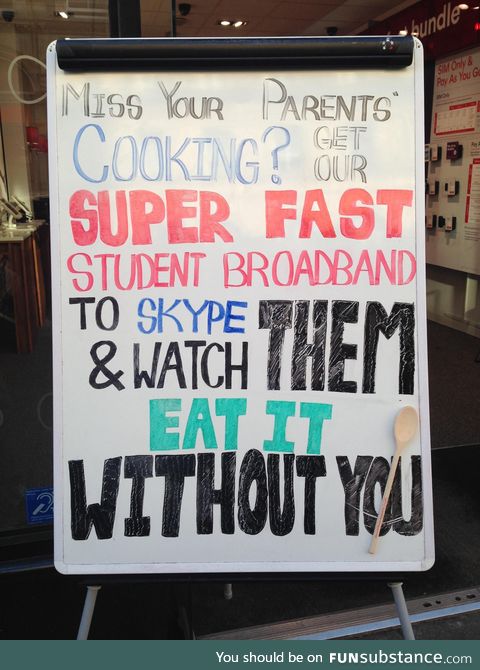 Miss Your Parents'
Cooking? GET
OUR
SUPER FAST
STUDENT BROADBAND
TO SKYPE
& WATCH THEM
EAT IT
WITHOUT YOU
bundle
SIM Only &
Pay As You G
You should be on FUNsubstance.com